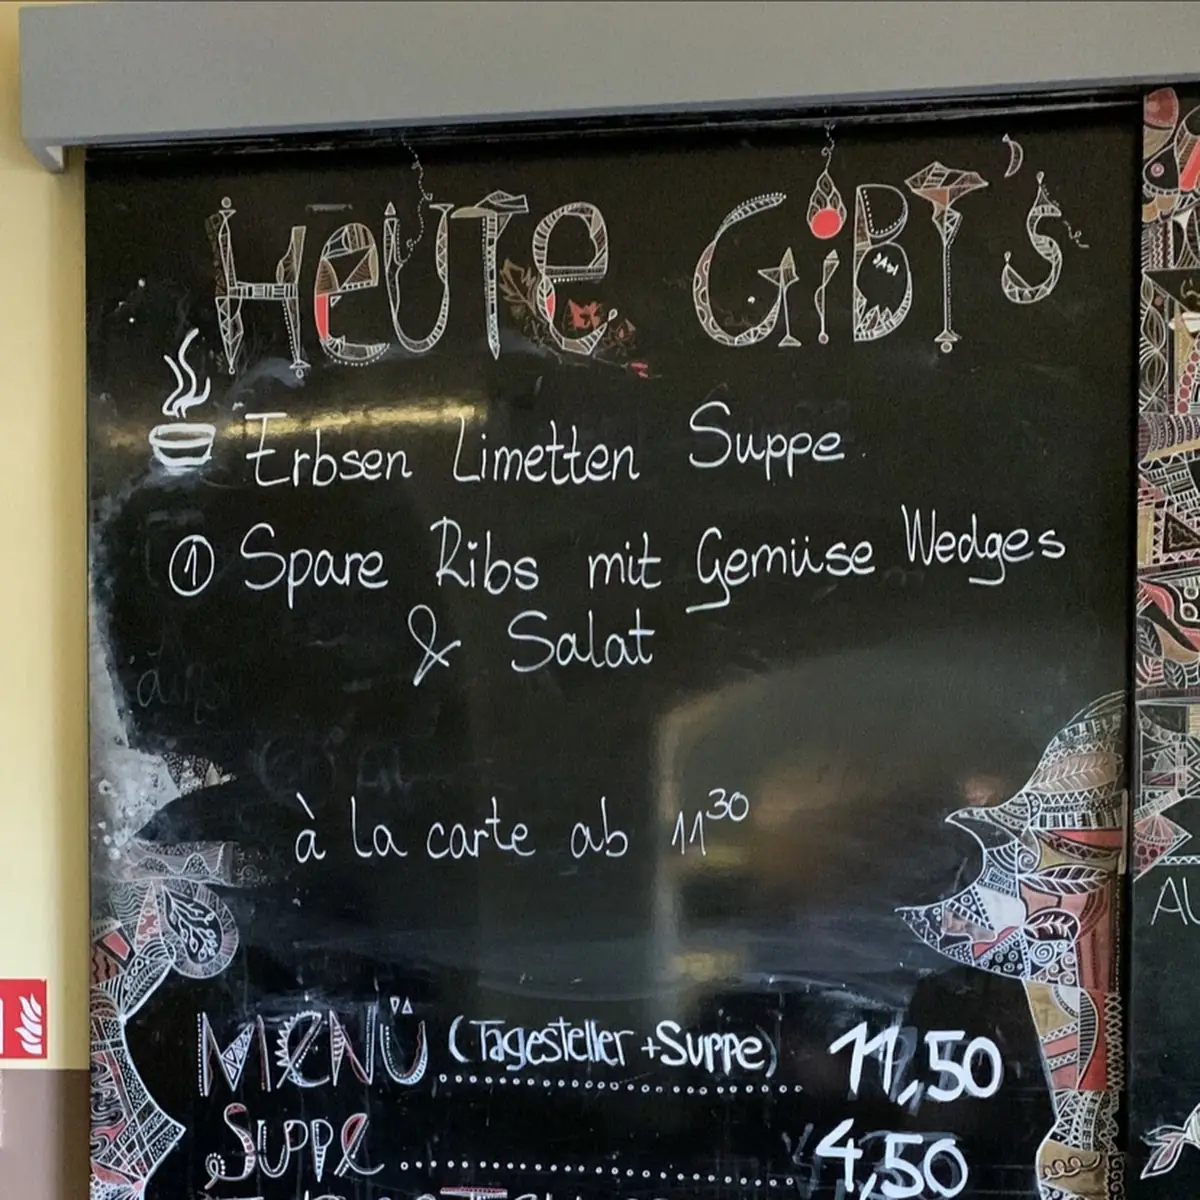 HeUTe GiBT's
Erbsen Limetten Suppe
① Spare Ribs mit Gemüse Wedges
& Salat
à la carte ab 11³⁰
MeNÜ (Tagesteller + Suppe) 11,50
SUPPE 4,50